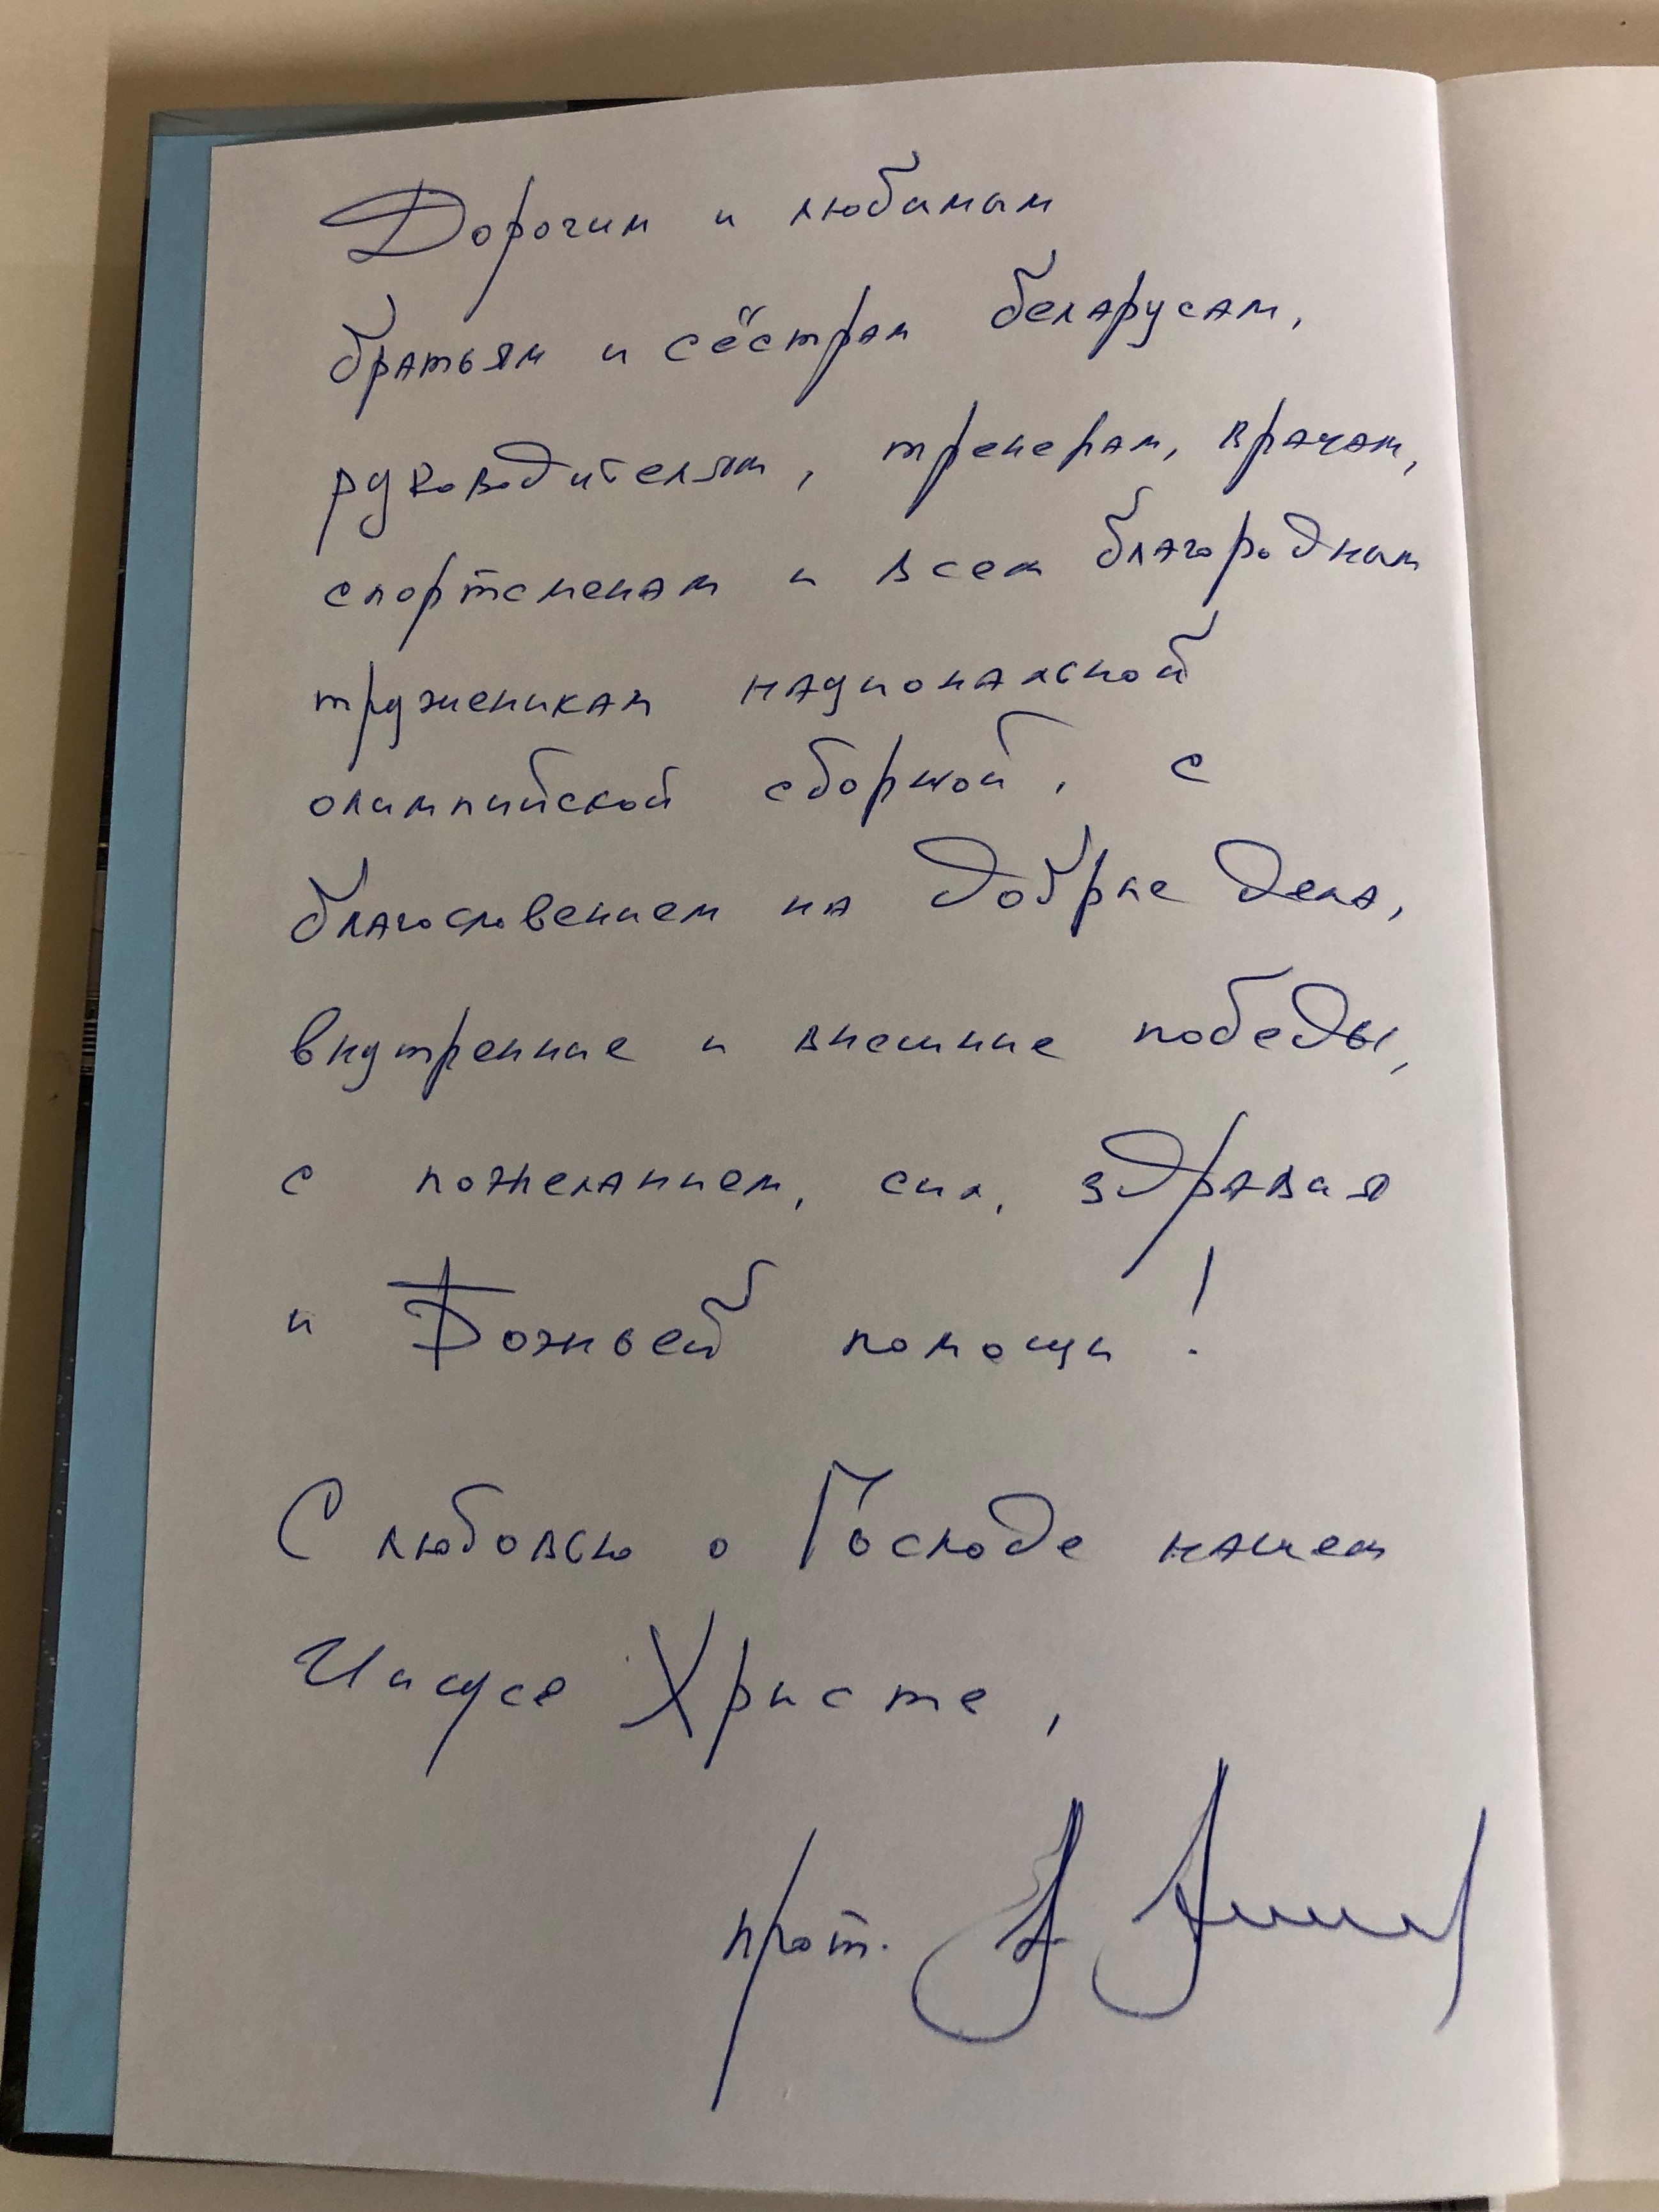 Дорогим и любимым
братьям и сёстрам беларусам,
руководителям, тренерам, врачам,
спортсменам и всем благородным
труженикам национальной
олимпийской сборной, с
благословением на добрые дела,
внутренние и внешние победы,
с пожеланием, сил, здравия
и Божьей помощи!
С любовью о Господе нашем
Иисусе Христе,
прот.